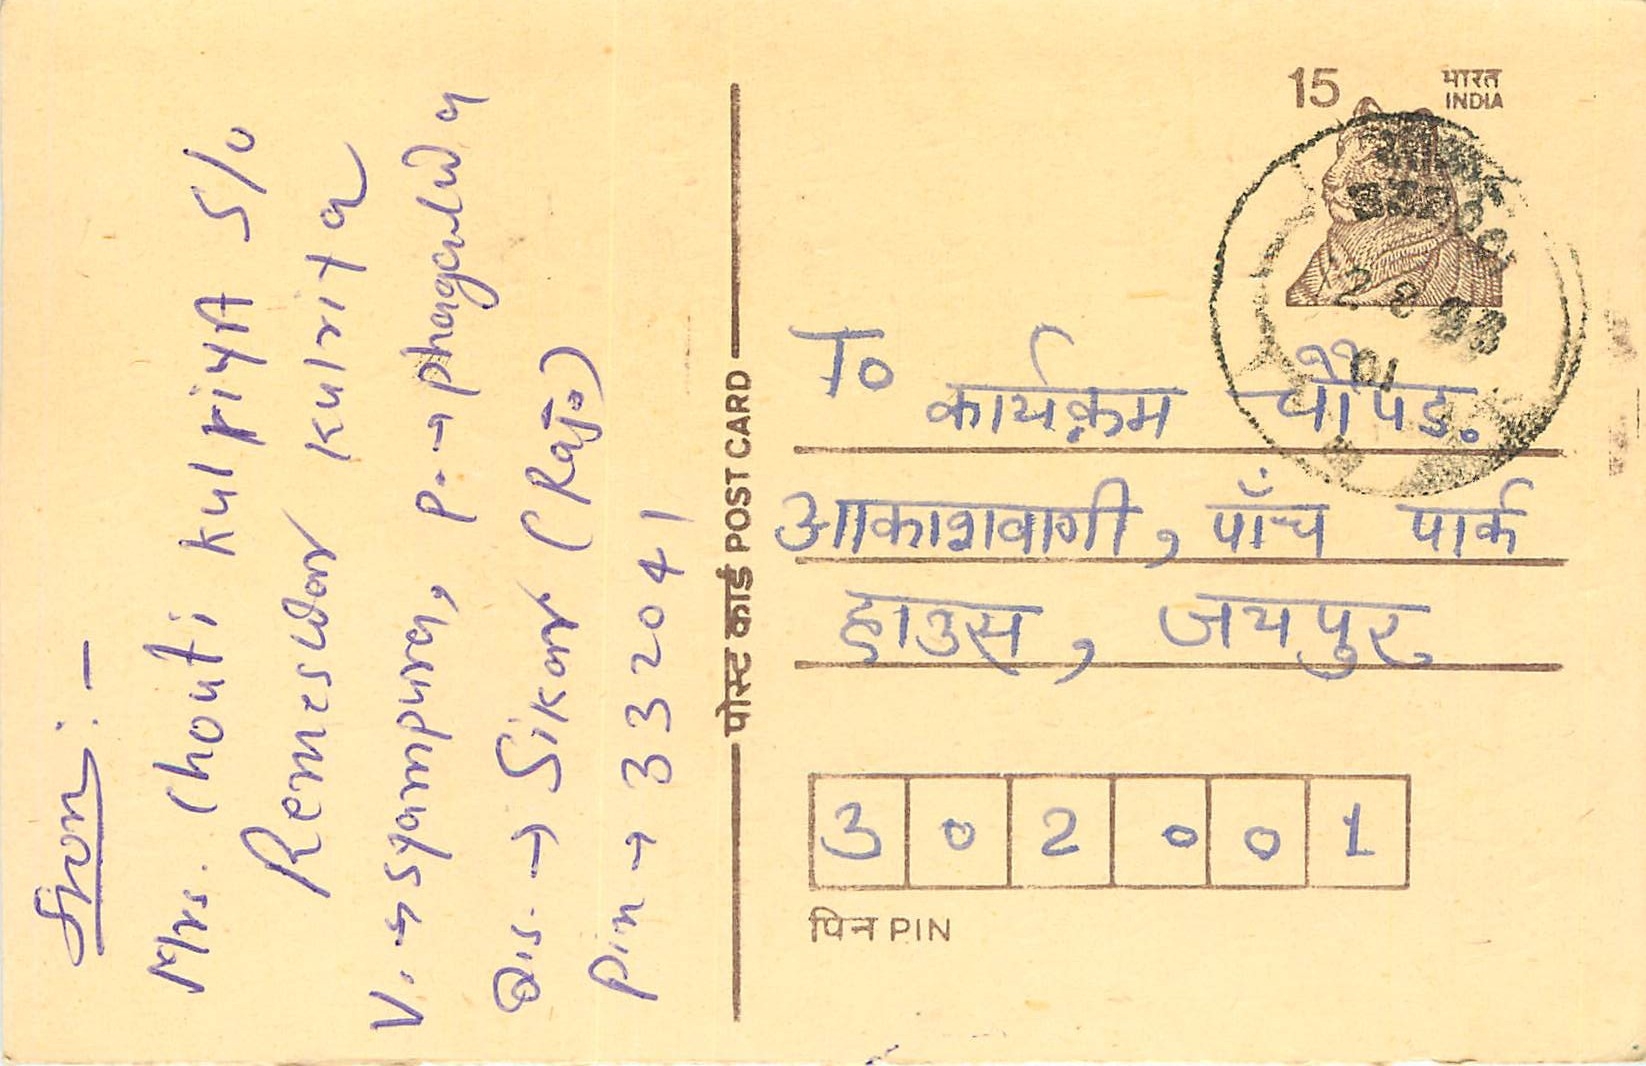 From:-
Mrs. Chouti kulriyA S/o
Remeswar kulrita
V. → syampura, P. → phagalwa
Dis. → Sikar (Raj.)
Pin → 332041
पोस्ट कार्ड POST CARD
15 भारत
INDIA
To
कार्यक्रम चौपड़.
आकाशवाणी, पाँच पार्क
हाउस, जयपुर
3 0 2 0 0 1
पिन PIN